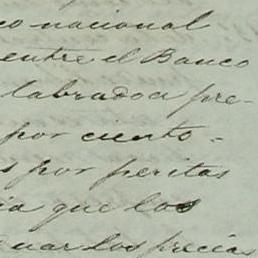 co nacional
entre el Banco
labrador pre-
por ciento -
s por peritos
ia que los
cuar los precios